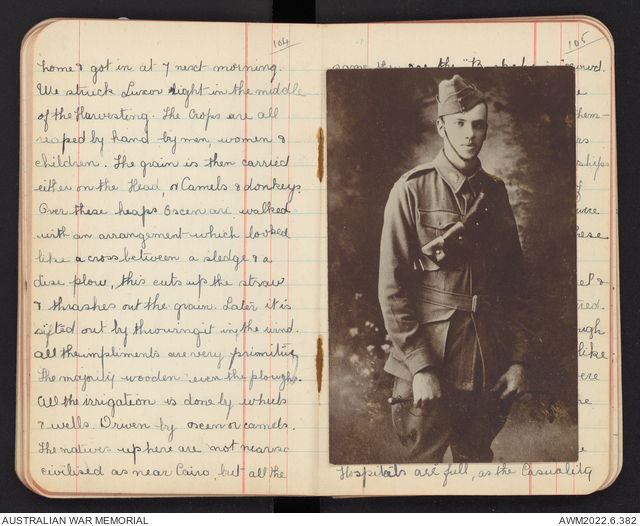 104
home & got in at 7 next morning.
We struck Luxor right in the middle
of the Harvesting. The Crops are all
reaped by hand by men, women &
children. The grain is then carried
either on the Head, or Camels & donkeys.
Over these heaps Oscen are walked
with an arrangement which looked
like a cross between a sledge & a
disc plow, this cuts up the straw
& thrashes out the grain. Later it is
sifted out by throuring it in the wind.
all the impliments are very primitive
The majority wooden even the ploughs.
All the irrigation is done by wheels
& wells. Driven by oscen or camels.
The natives up here are not near so
civilised as near Cairo, but all the
105
the
them-
ships
of
like
Hospitals are full, as the Casuality
AUSTRALIAN WAR MEMORIAL
AWM2022.6.382